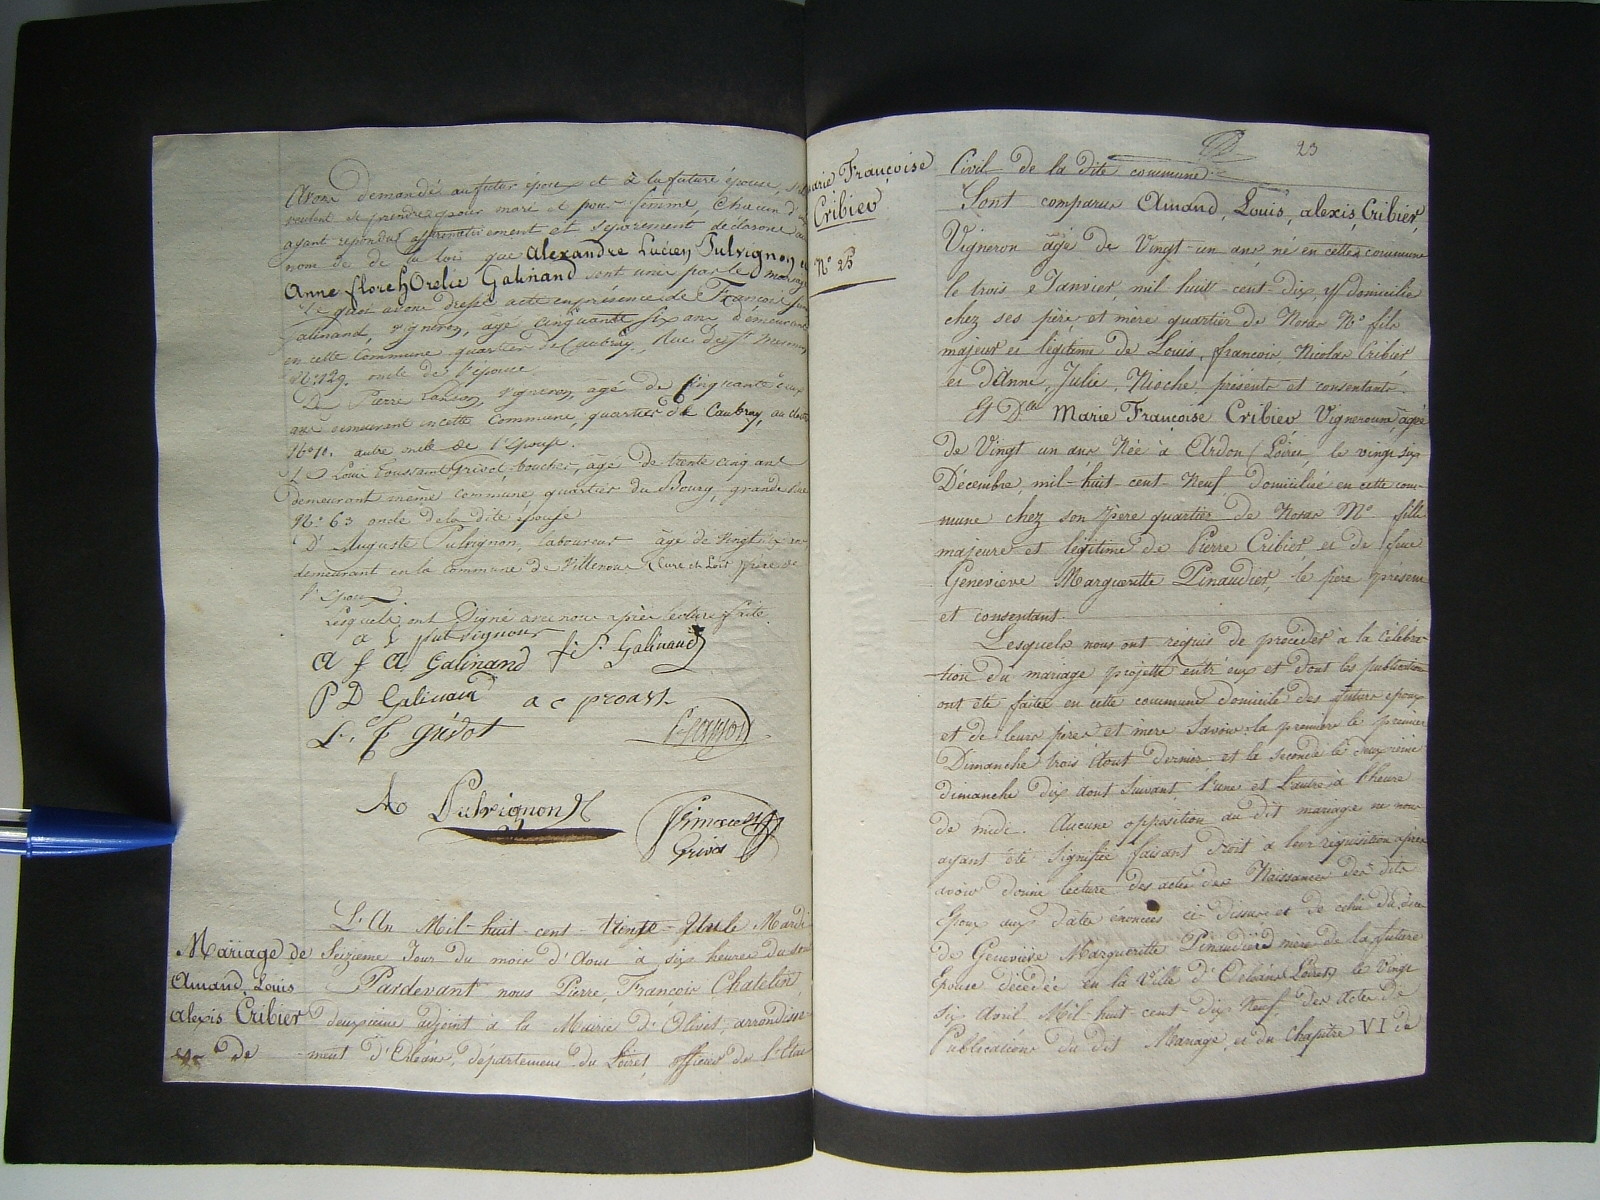 Avons demandé au futur époux et à la future épouse, s'ils
veulent se prendre pour mari et pour femme, chacun d'eux
ayant repondu affirmativement et séparement déclarons au
nom de de la loi que Alexandre Lucien Pulvignon et
Anne flore hOrelie Galinand sont unis par le mariage
De quoi avons dressé acte en présence de François
Galinand, vigneron, âgé cinquante six ans demeurant
en cette commune quartier de Caubray, Rue de St Mesmin
N° 129. oncle de l'épouse.
D. Pierre Lanson, vigneron, agé de cinquante deux
ans demeurant en cette commune, quartier de Caubray, au clos
N° 11. autre oncle de l'épouse.
D Louis Toussaint Grivot, boucher, âgé de trente cinq ans
demeurant même commune quartier du Bourg, grande Rue
N° 63 oncle de la dite épouse
D' Auguste Pulvignon, Laboureur âgé de vingt
demeurant en la commune de Eure et Loir frère de
l'époux
Lesquels ont Signé avec nous après lecture faite.
a L pulvignon
a f a Galinand f. P. Galinand
P D Galinand a c proast
L. T grivot Lanson
A Pulvignon
Grivot
L'An Mil-huit-cent-trente-Un le Mardi
Seizieme Jour du mois d'Aout à six heures du soir
Pardevant nous Pierre, François Chatelin,
deuxieme adjoint à la Mairie d'Olivet, arrondisse-
ment d'Orléans, département du Loiret, officier de l'Etat
Mariage de
Amand, Louis
alexis Cribier
et de
Marie Françoise
Cribier
N° 25
23
Civil de la dite commune
Sont comparus Amand, Louis, alexis, Cribier,
Vigneron âgé de Vingt-un ans né en cette commune
le trois Janvier, mil huit-cent-dix, y domicilié
chez ses père et mère quartier de Noras N° fils
majeur et légitime de Louis, françois, Nicolas Cribier
et d'Anne, Julie, Rioche présents et consentants.
Et Dlle Marie Françoise Cribier Vigneronne, âgée
de Vingt un ans Née à Ardon (Loiret) le vingt six
Décembre, mil-huit-cent-Neuf domiciliée en cette com-
mune chez son père quartier de Noras N° fille
majeure et légitime de Pierre Cribier et de feue
Geneviève Margueritte Pinaudier, le père présent
et consentant.
Lesquels nous ont requis de procéder à la célébra-
tion du mariage projetté entr'eux et dont les publications
ont été faites en cette commune domicile des futurs époux
et de leurs pères et mère savoir la première le premier
Dimanche trois Aout dernier et la seconde le deuxieme
dimanche dix aout suivant, l'une et l'autre à l'heure
de midi. Aucune opposition au dit mariage ne nous
ayant été signifiée faisant droit à leur réquisition après
avoir donné lecture des actes des Naissances des dits
Epoux aux dates énoncées ci-dessus et de celui du décès
de Geneviève Margueritte Pinaudier mère de la future
Epouse décédée en la Ville d'Orléans (Loiret) le Vingt
six Avril Mil-huit-cent-dix Neuf, des actes de
Publications du dit Mariage, et du Chapitre VI de